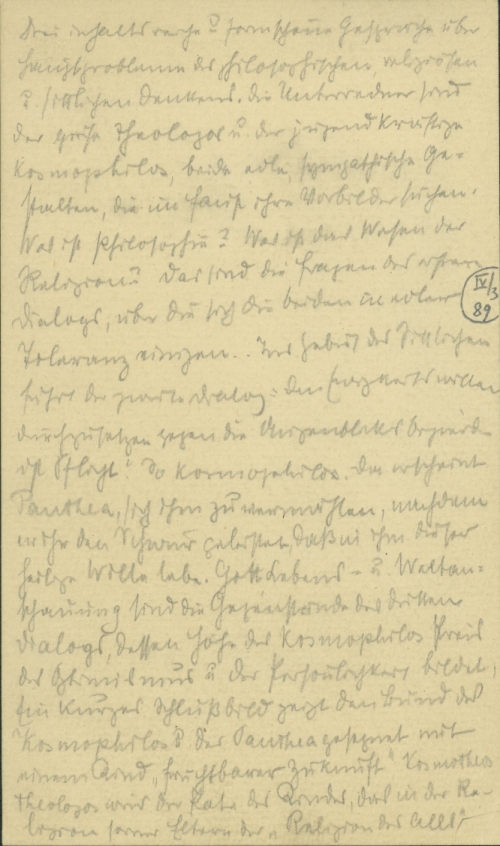 Drei inhaltsreiche u. formschöne Gespräche über
Hauptprobleme des philosophischen, religiösen
u. sittlichen Denkens. Die Unterredner sind
der greise Theologos u. der jugendkräftige
Kosmophilos, beide edle, sympathische Ge-
stalten, die im Faust ihre Vorbilder suchen.
Was ist Philosophie? Was ist das Wesen der
Religion? Das sind die Fragen des ersten
Dialogs, über die sich die beiden in edler
IV/3
89
Toleranz einigen. Ins Gebiet des Sittlichen
führt der zweite Dialog: Den Ewigkeitswillen
durchzusetzen gegen die Augenblicksbegierde
ist Pflicht! So Kosmophilos. Da erscheint
Panthea, sich ihm zu vermählen, nachdem
er ihr den Schwur geleistet, daß in ihm dieser
heilge Wille lebe. Gott, Lebens- u. Weltan-
schauung sind die Gegenstände des dritten
Dialogs, dessen Höhe des Kosmophilos Preis
des Optimismus u. der Persönlichkeit bildet.
Ein kurzes Schlußbild zeigt den Bund des
Kosmophilos u. der Panthea gesegnet mit
einem Kind, "fruchtbarer Zukunft" Kosmotheos
Theologos wird der Pate des Kindes, das in der Re-
ligion seiner Eltern der "Religion des Alls"